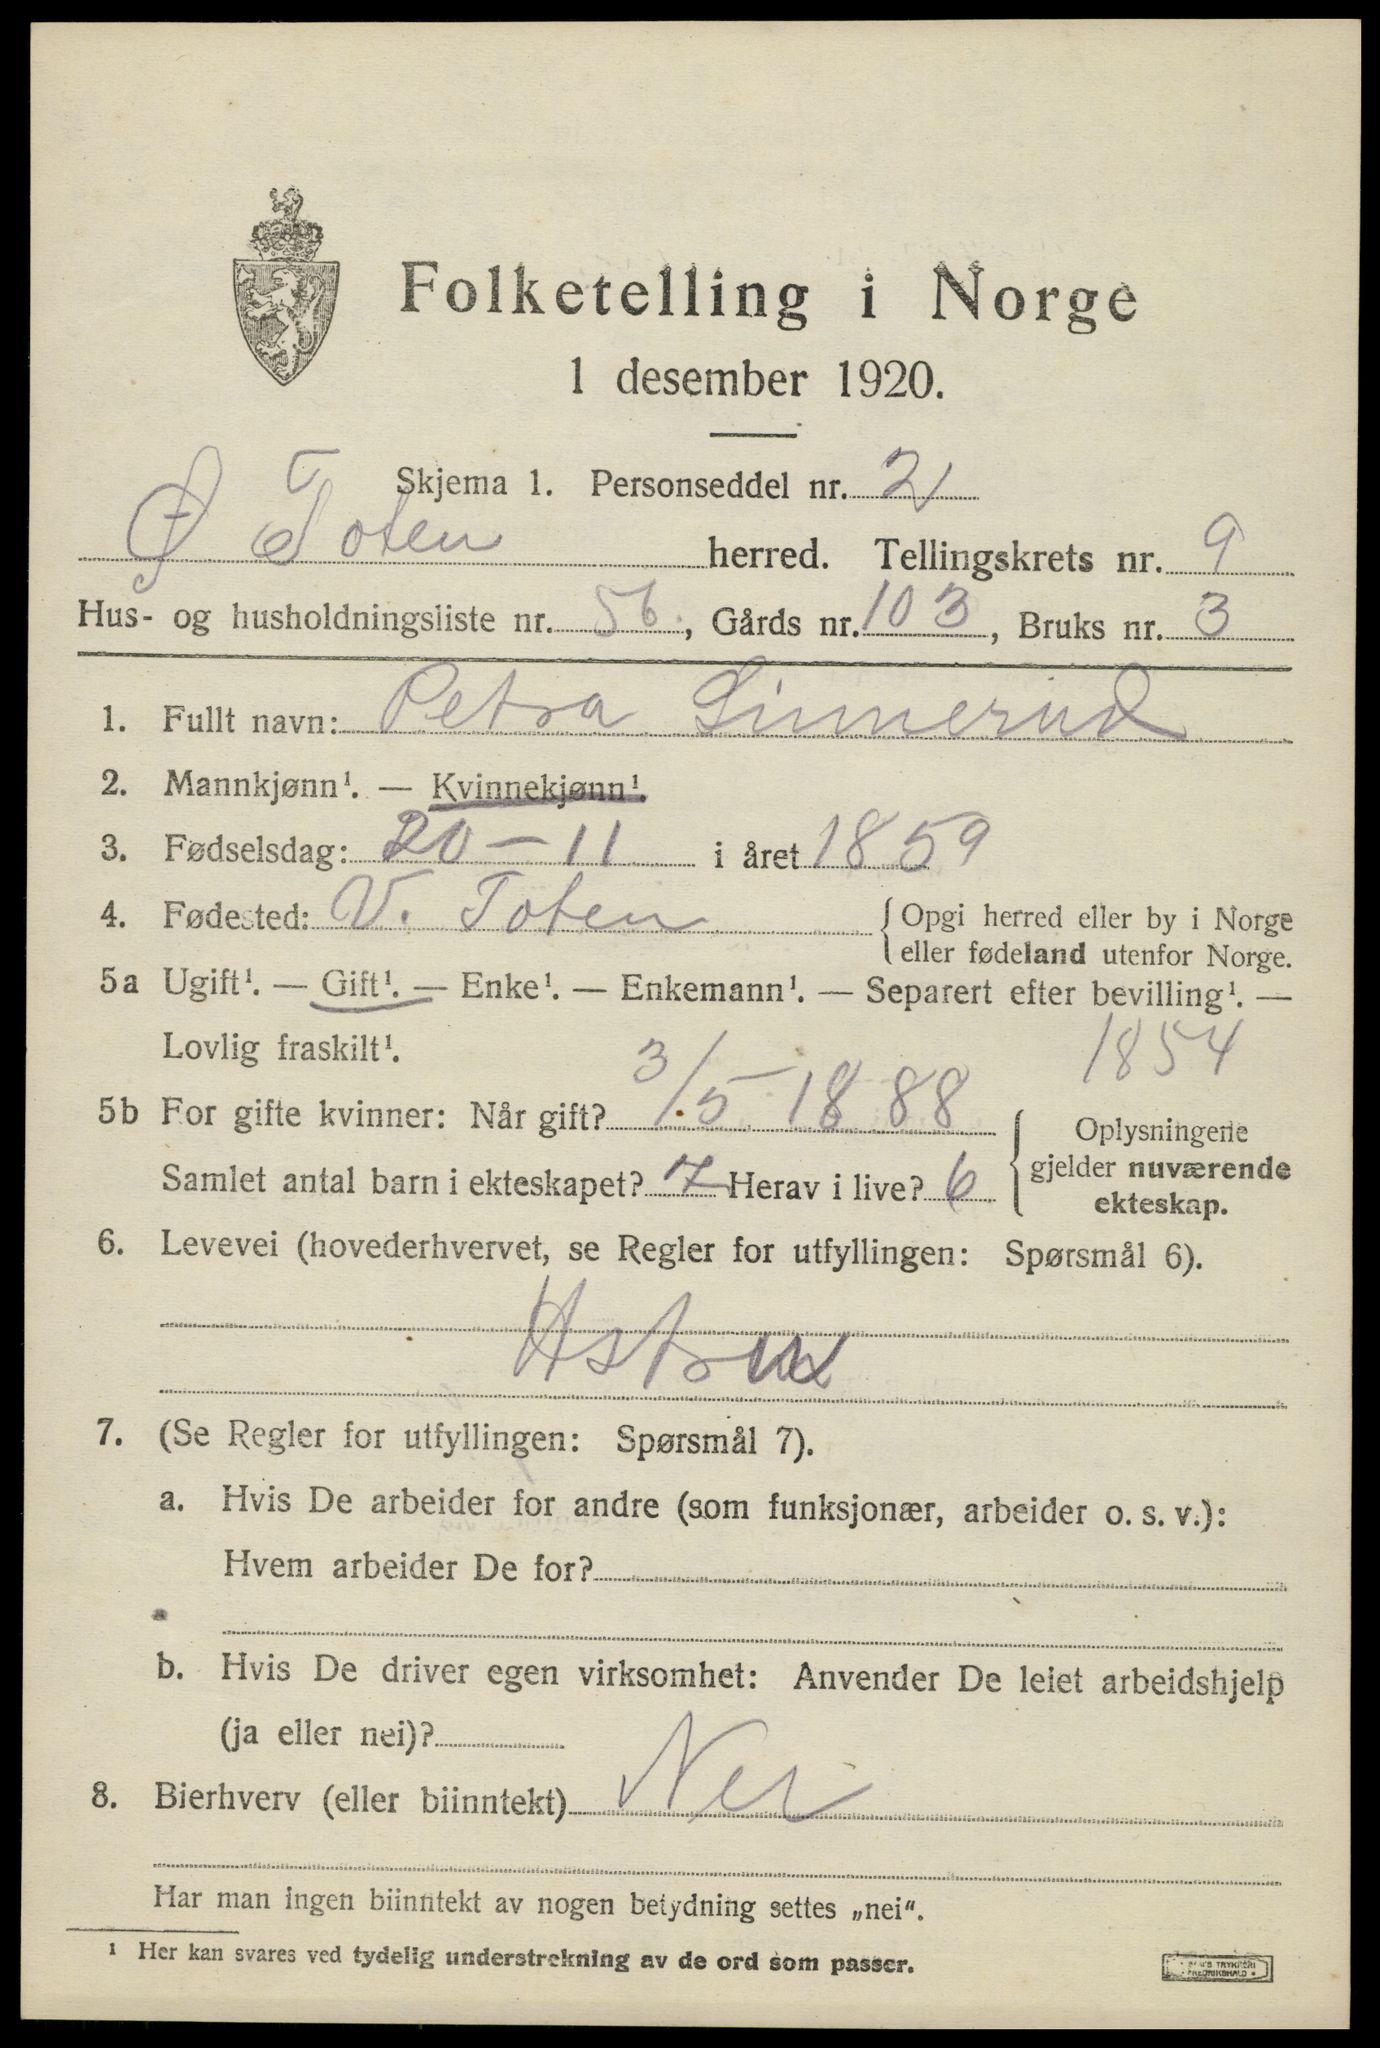 Folketelling i Norge
1 desember 1920.
Skjema 1. Personseddel nr. 2
Ø Toten herred. Tellingskrets nr. 9
Hus- og husholdningsliste nr. 56, Gårds nr. 103, Bruks nr. 3
1. Fullt navn: Petra Linnerud
2. Mannkjønn¹. — Kvinnekjønn¹.
3. Fødselsdag: 20 - 11 i året 1859
4. Fødested: V. Toten { Opgi herred eller by i Norge
eller fødeland utenfor Norge.
5a Ugift¹. — Gift¹. — Enke¹. — Enkemann¹. — Separert efter bevilling¹. —
Lovlig fraskilt¹. 1854
5b For gifte kvinner: Når gift? 3/5 1888
Samlet antal barn i ekteskapet? 7 Herav i live? 6
{ Oplysningene
gjelder nuværende
ekteskap.
6. Levevei (hovederhvervet, se Regler for utfyllingen: Spørsmål 6).
7. (Se Regler for utfyllingen: Spørsmål 7).
a. Hvis De arbeider for andre (som funksjonær, arbeider o. s. v.):
Hvem arbeider De for?
b. Hvis De driver egen virksomhet: Anvender De leiet arbeidshjelp
(ja eller nei)?
8. Bierhverv (eller biinntekt) Nei
Har man ingen biinntekt av nogen betydning settes „nei“.
¹ Her kan svares ved tydelig understrekning av de ord som passer.
TRYKKERI
FREDRIKSHALD